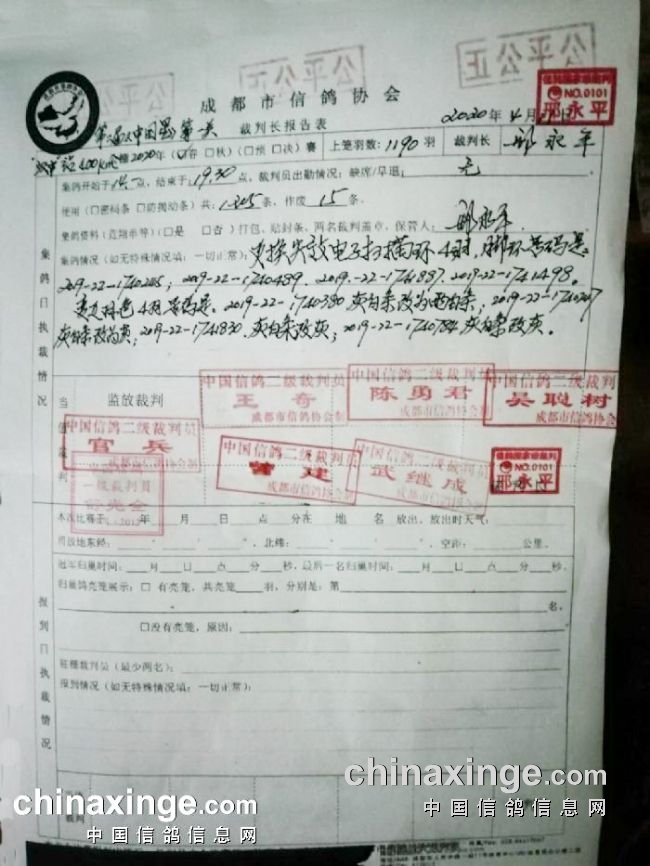 公平公正
公平公正
公平公正
成都市信鸽协会
信鸽国家级裁判
NO.0101
邢永平
裁判长报告表
2020年4月
400km 2020年(☑春 □秋)(□预 □决)赛 上笼羽数:1190羽 裁判长
集鸽开始于 点,结束于19:30点,裁判员出勤情况:缺席/早退:无
使用(□密码条 □防揭动条)共: 条,作废15条。
集鸽资料(直翔单等)(□是 □否)打包、贴封条、两名裁判盖章,保管人:
集鸽情况(如无特殊情况填:一切正常):更换失效电子扫描环4羽,脚环号码是:
2019-22-1740205;2019-22-1740489.2019-22-1741887.2019-22-1741498。
羽色4羽号码是.2019-22-1740380灰白条改为雨白条;2019-22-1740207
灰白条改为灰;2019-22-1741830.灰白条改灰;2019-22-1740784灰白条改灰。
集鸽日执裁情况
当值裁判
监放裁判
中国信鸽二级裁判员
王奇
成都市信鸽协会制
中国信鸽二级裁判员
陈勇君
成都市信鸽协会制
中国信鸽二级裁判员
吴聪树
成都市信鸽协会制
中国信鸽二级裁判员
官兵
成都市信鸽协会制
中国信鸽二级裁判员
曾建
成都市信鸽协会制
中国信鸽二级裁判员
武继成
成都市信鸽协会制
信鸽国家级裁判
NO.0101
邢永平
一级裁判员
本次比赛于 年 月 日 点 分在 地 名 放出,放出时天气:
司放地东经: 北纬: 空距: 公里。
冠军归巢时间: 月 日 点 分 秒,最后一名归巢时间: 月 日 点 分 秒
归巢鸽亮笼展示:□ 有亮笼,共亮笼 羽,分别是:第
名。
□没有亮笼,原因:
报到日执裁情况
驻棚裁判员(最少两名):
报到情况(如无特殊情况填:一切正常):
裁判
chinaxinge.com
中国信鸽信息网
chinaxinge.com
中国信鸽信息网